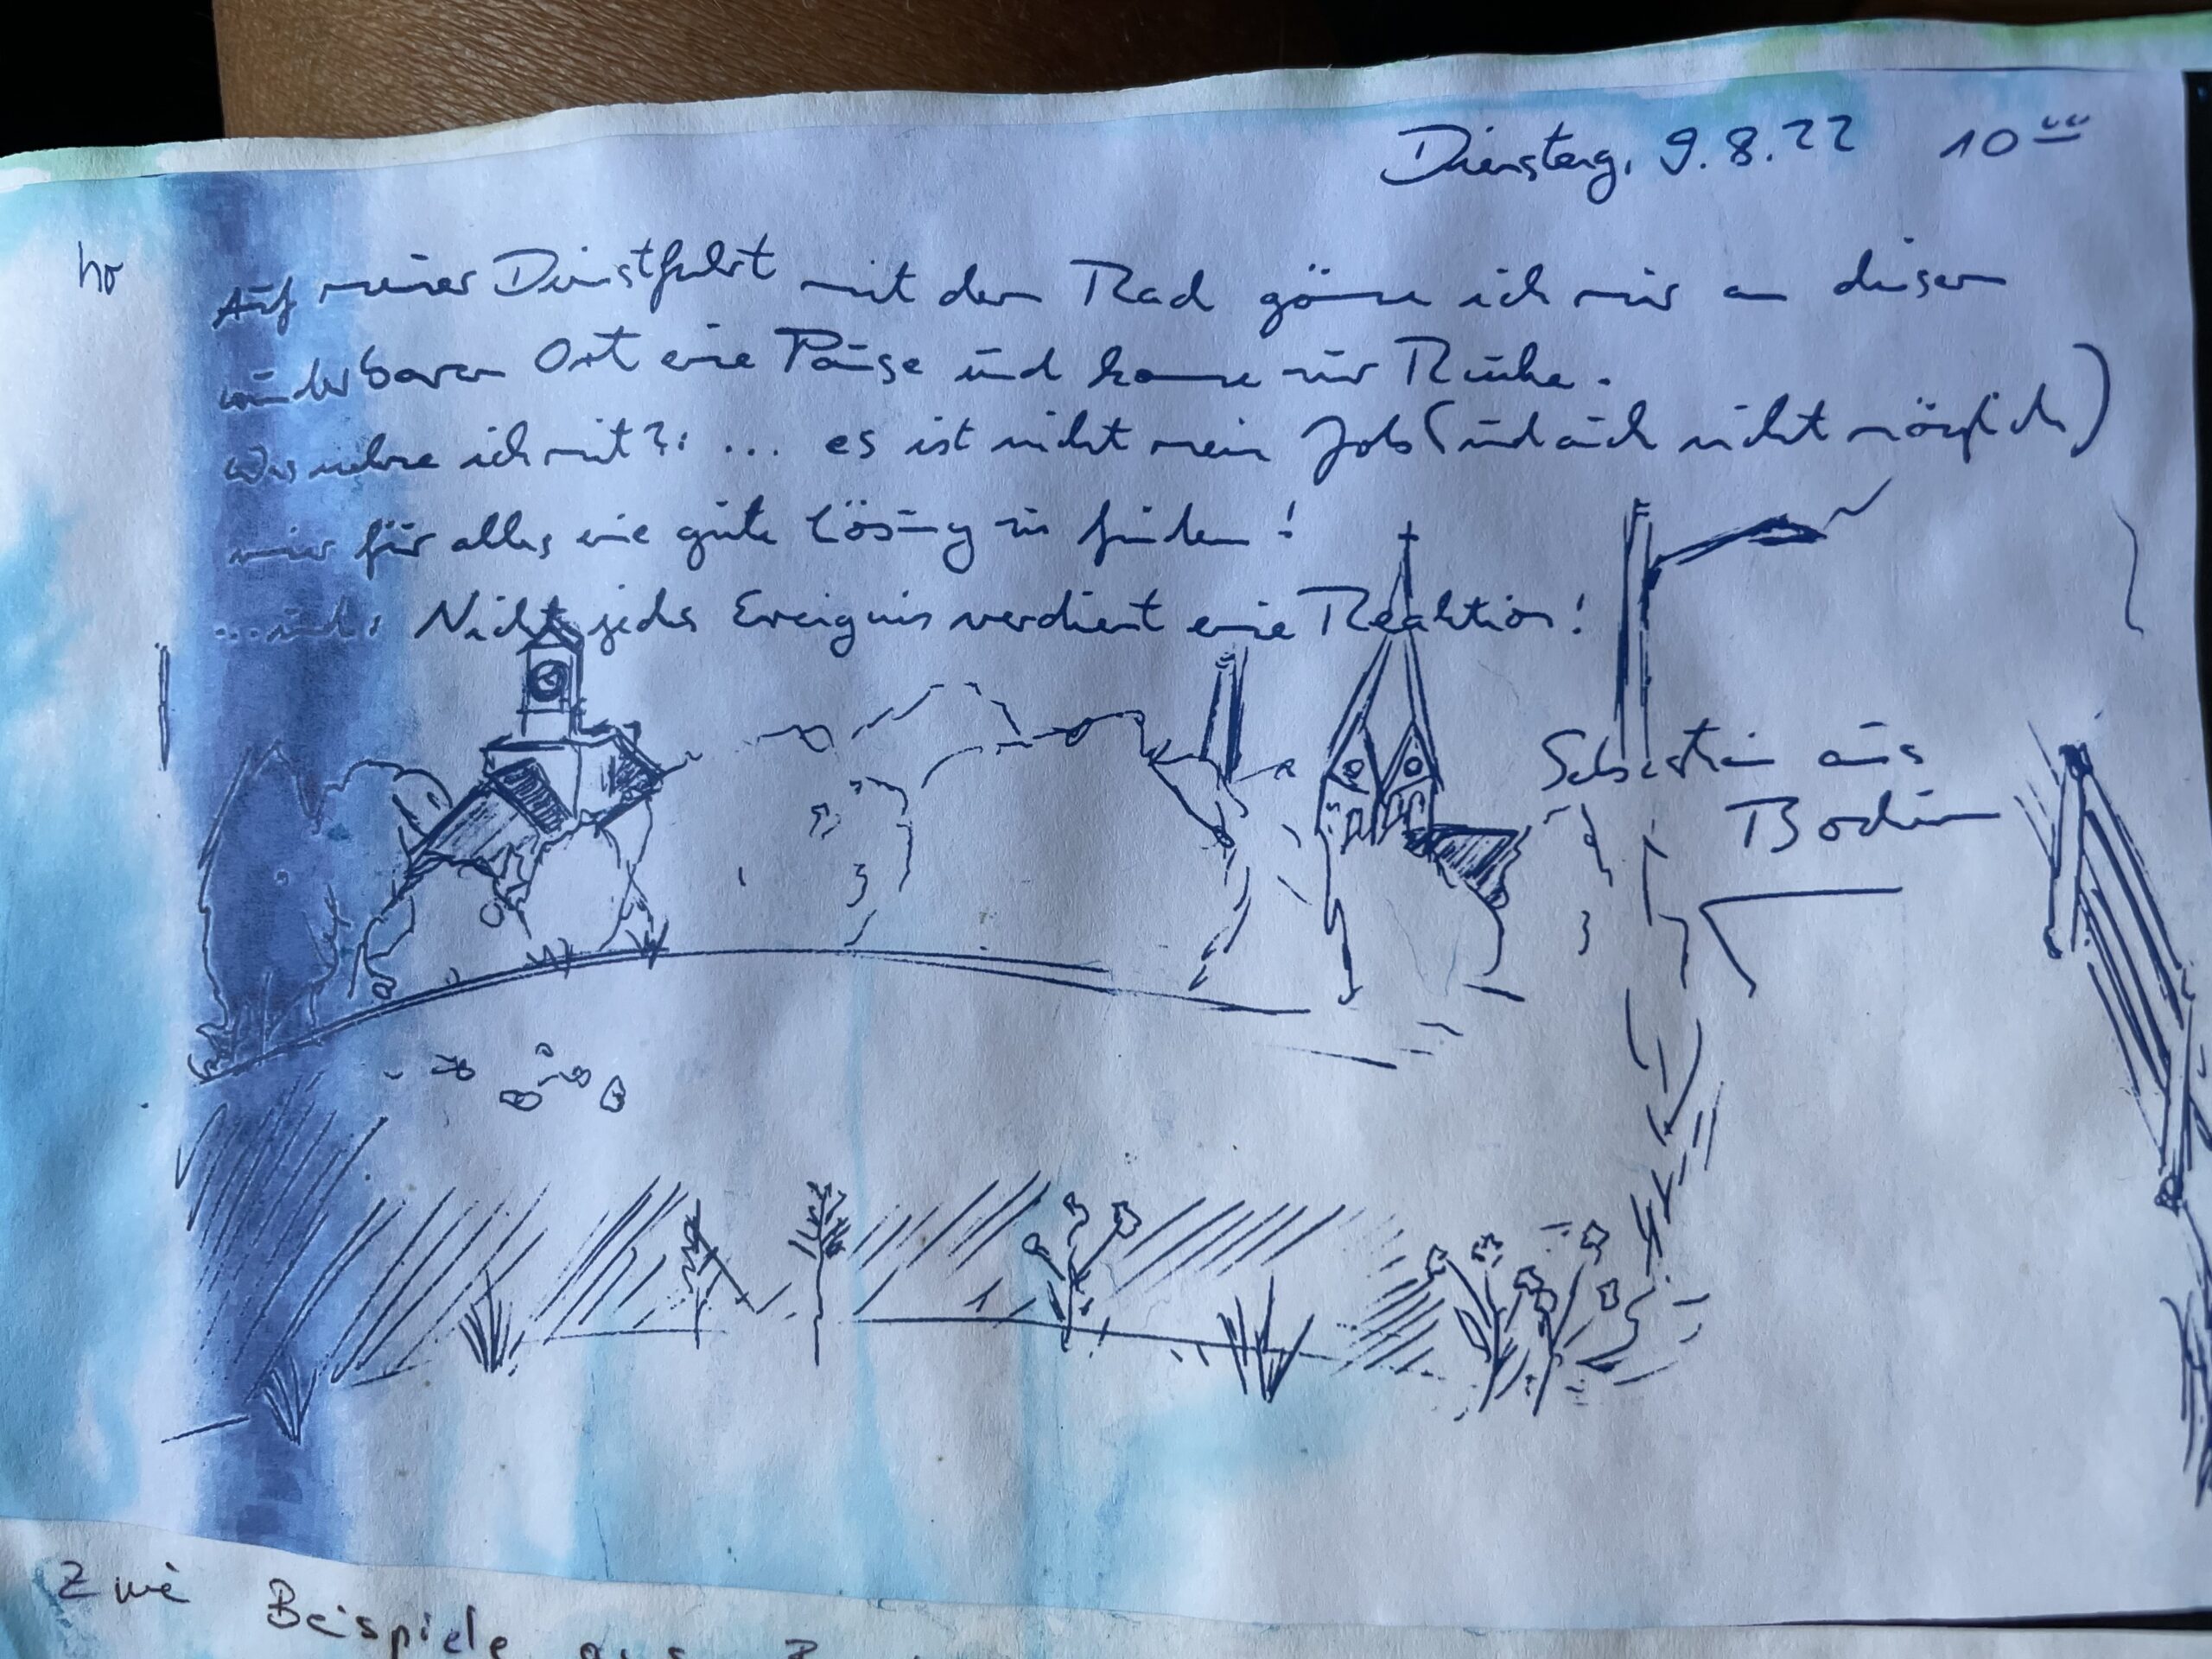 Dienstag, 9.8.22 10⁰⁰
Auf meiner Dienstfahrt mit dem Rad gönne ich mir an diesem
wunderbaren Ort eine Pause und komme zur Ruhe.
Was nehme ich mit?: ... es ist nicht mein Job (und auch nicht möglich)
mir für alles eine gute Lösung zu finden!
...und: Nicht jedes Ereignis verdient eine Reaktion!
Sebastian aus
Zwei
Beispiele aus